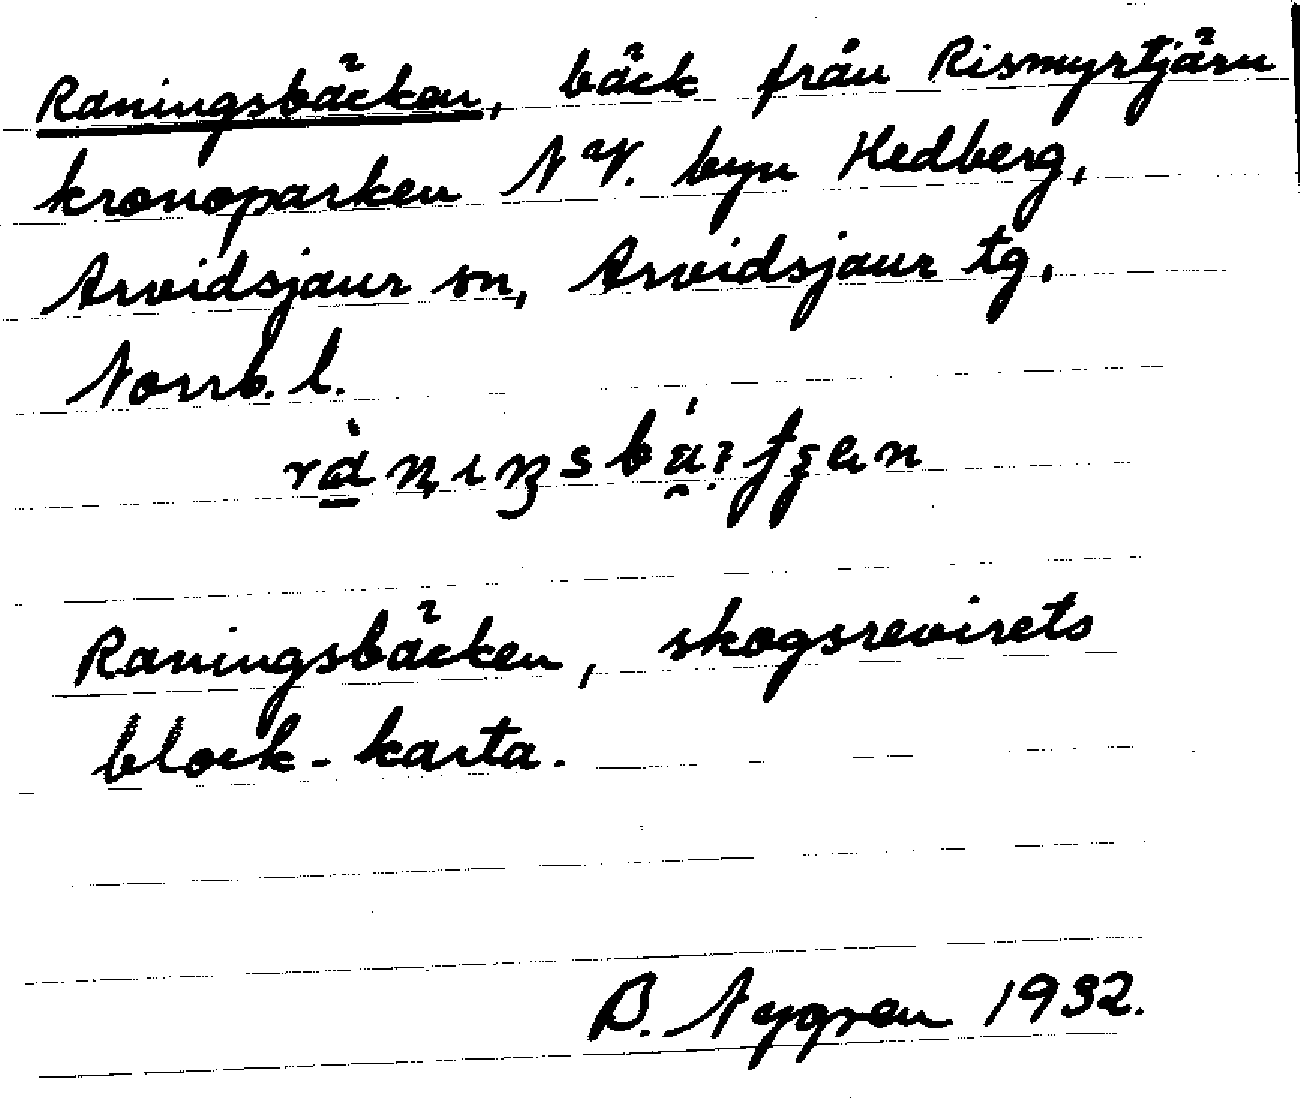 Raningsbäcken, bäck från Rismyrtjärn
kronoparken NV. byn Hedberg,
Arvidsjaur sn, Arvidsjaur tg.
Norrb. l.
Raningsbäcken, skogsrevirets
block-karta.
B. Nygren 1932.